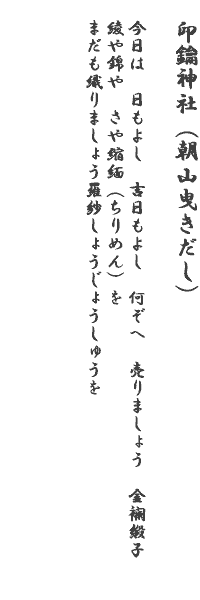 印鑰神社（朝山曳きだし）
今日は　日もよし　吉日もよし　何ぞへ　売りましょう　金襴緞子
綾や錦や　さや縮緬（ちりめん）を
まだも織りましょう羅紗しょうじょうしゅうを